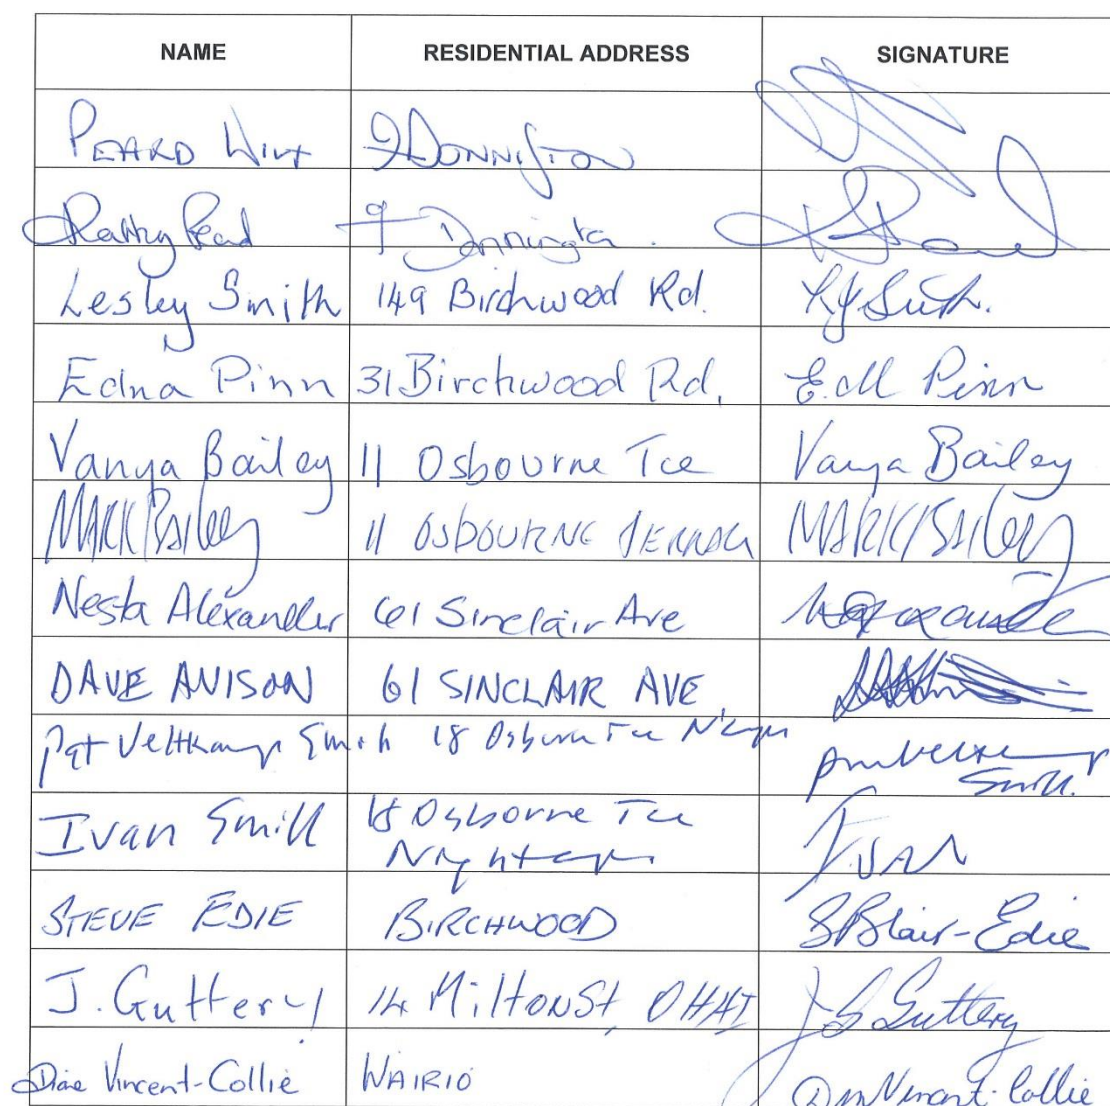 NAME RESIDENTIAL ADDRESS SIGNATURE
PEARD 9 DONNINGTON
Kathy Peard 9 Donnington.
Lesley Smith 149 Birchwood Rd.
Edna Pinn 31 Birchwood Rd, E.M Pinn
Vanya Bailey 11 Osbourne Tce Vanya Bailey
MARK Bailey 11 OSBOURNE TERRACE MARK BAILEY
Nesta Alexander 61 Sinclair Ave
DAVE AVISON 61 SINCLAIR AVE,
Pat Veltkamp Smith 18 Osborne Tce N'caps
Smith.
Ivan Smith 18 Osborne Tce IVAN
Nightcaps
STEVE EDIE BIRCHWOOD S Blair-Edie
J. Guttery 14 Milton St, OHAI J S Guttery
Diane Vincent-Collie WAIRIO Vincent-Collie